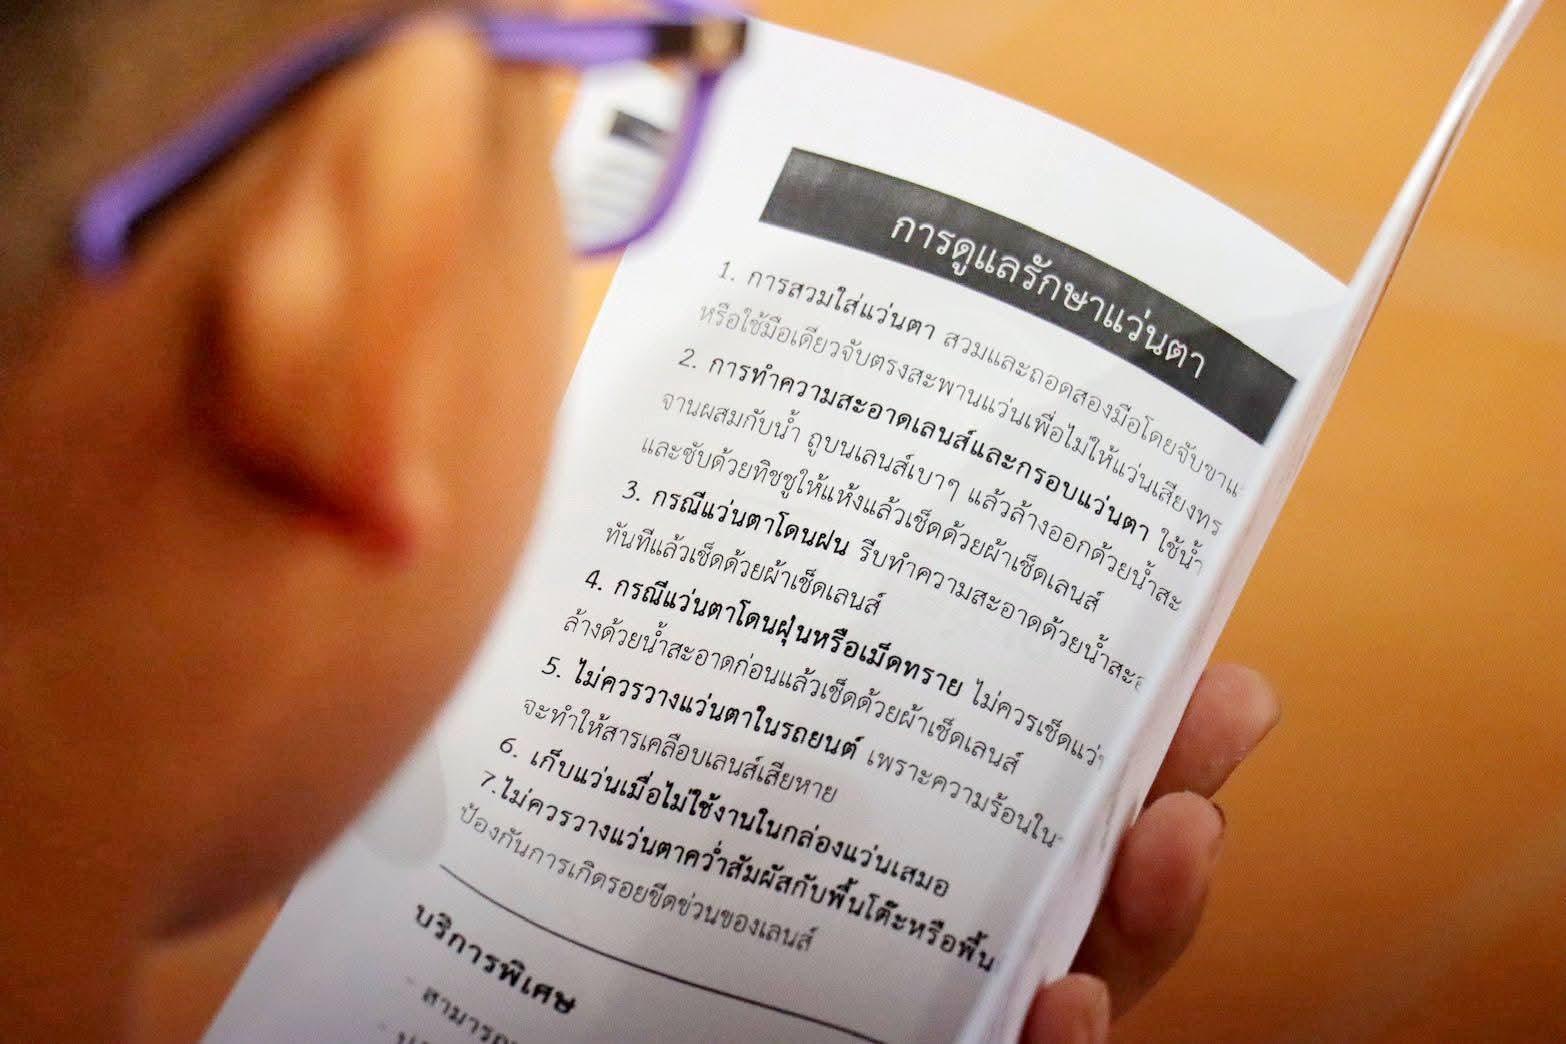 การดูแลรักษาแว่นตา
1. การสวมใส่แว่นตา สวมและถอดสองมือโดยจับขาแ
หรือใช้มือเดียวจับตรงสะพานแว่นเพื่อไม่ให้แว่นเสียงทร
2. การทำความสะอาดเลนส์และกรอบแว่นตา ใช้น้ำ
จานผสมกับน้ำ ถูบนเลนส์เบาๆ แล้วล้างออกด้วยน้ำสะ
และซับด้วยทิชชูให้แห้งแล้วเช็ดด้วยผ้าเช็ดเลนส์
3. กรณีแว่นตาโดนฝน รีบทำความสะอาดด้วยน้ำสะอ
ทันทีแล้วเช็ดด้วยผ้าเช็ดเลนส์
4. กรณีแว่นตาโดนฝุ่นหรือเม็ดทราย ไม่ควรเช็ดแว่
ล้างด้วยน้ำสะอาดก่อนแล้วเช็ดด้วยผ้าเช็ดเลนส์
5. ไม่ควรวางแว่นตาในรถยนต์ เพราะความร้อนใน
จะทำให้สารเคลือบเลนส์เสียหาย
6. เก็บแว่นเมื่อไม่ใช้งานในกล่องแว่นเสมอ
7.ไม่ควรวางแว่นตาคว่ำสัมผัสกับพื้นโต๊ะหรือพื้น
ป้องกันการเกิดรอยขีดข่วนของเลนส์
บริการพิเศษ
- สามารถ